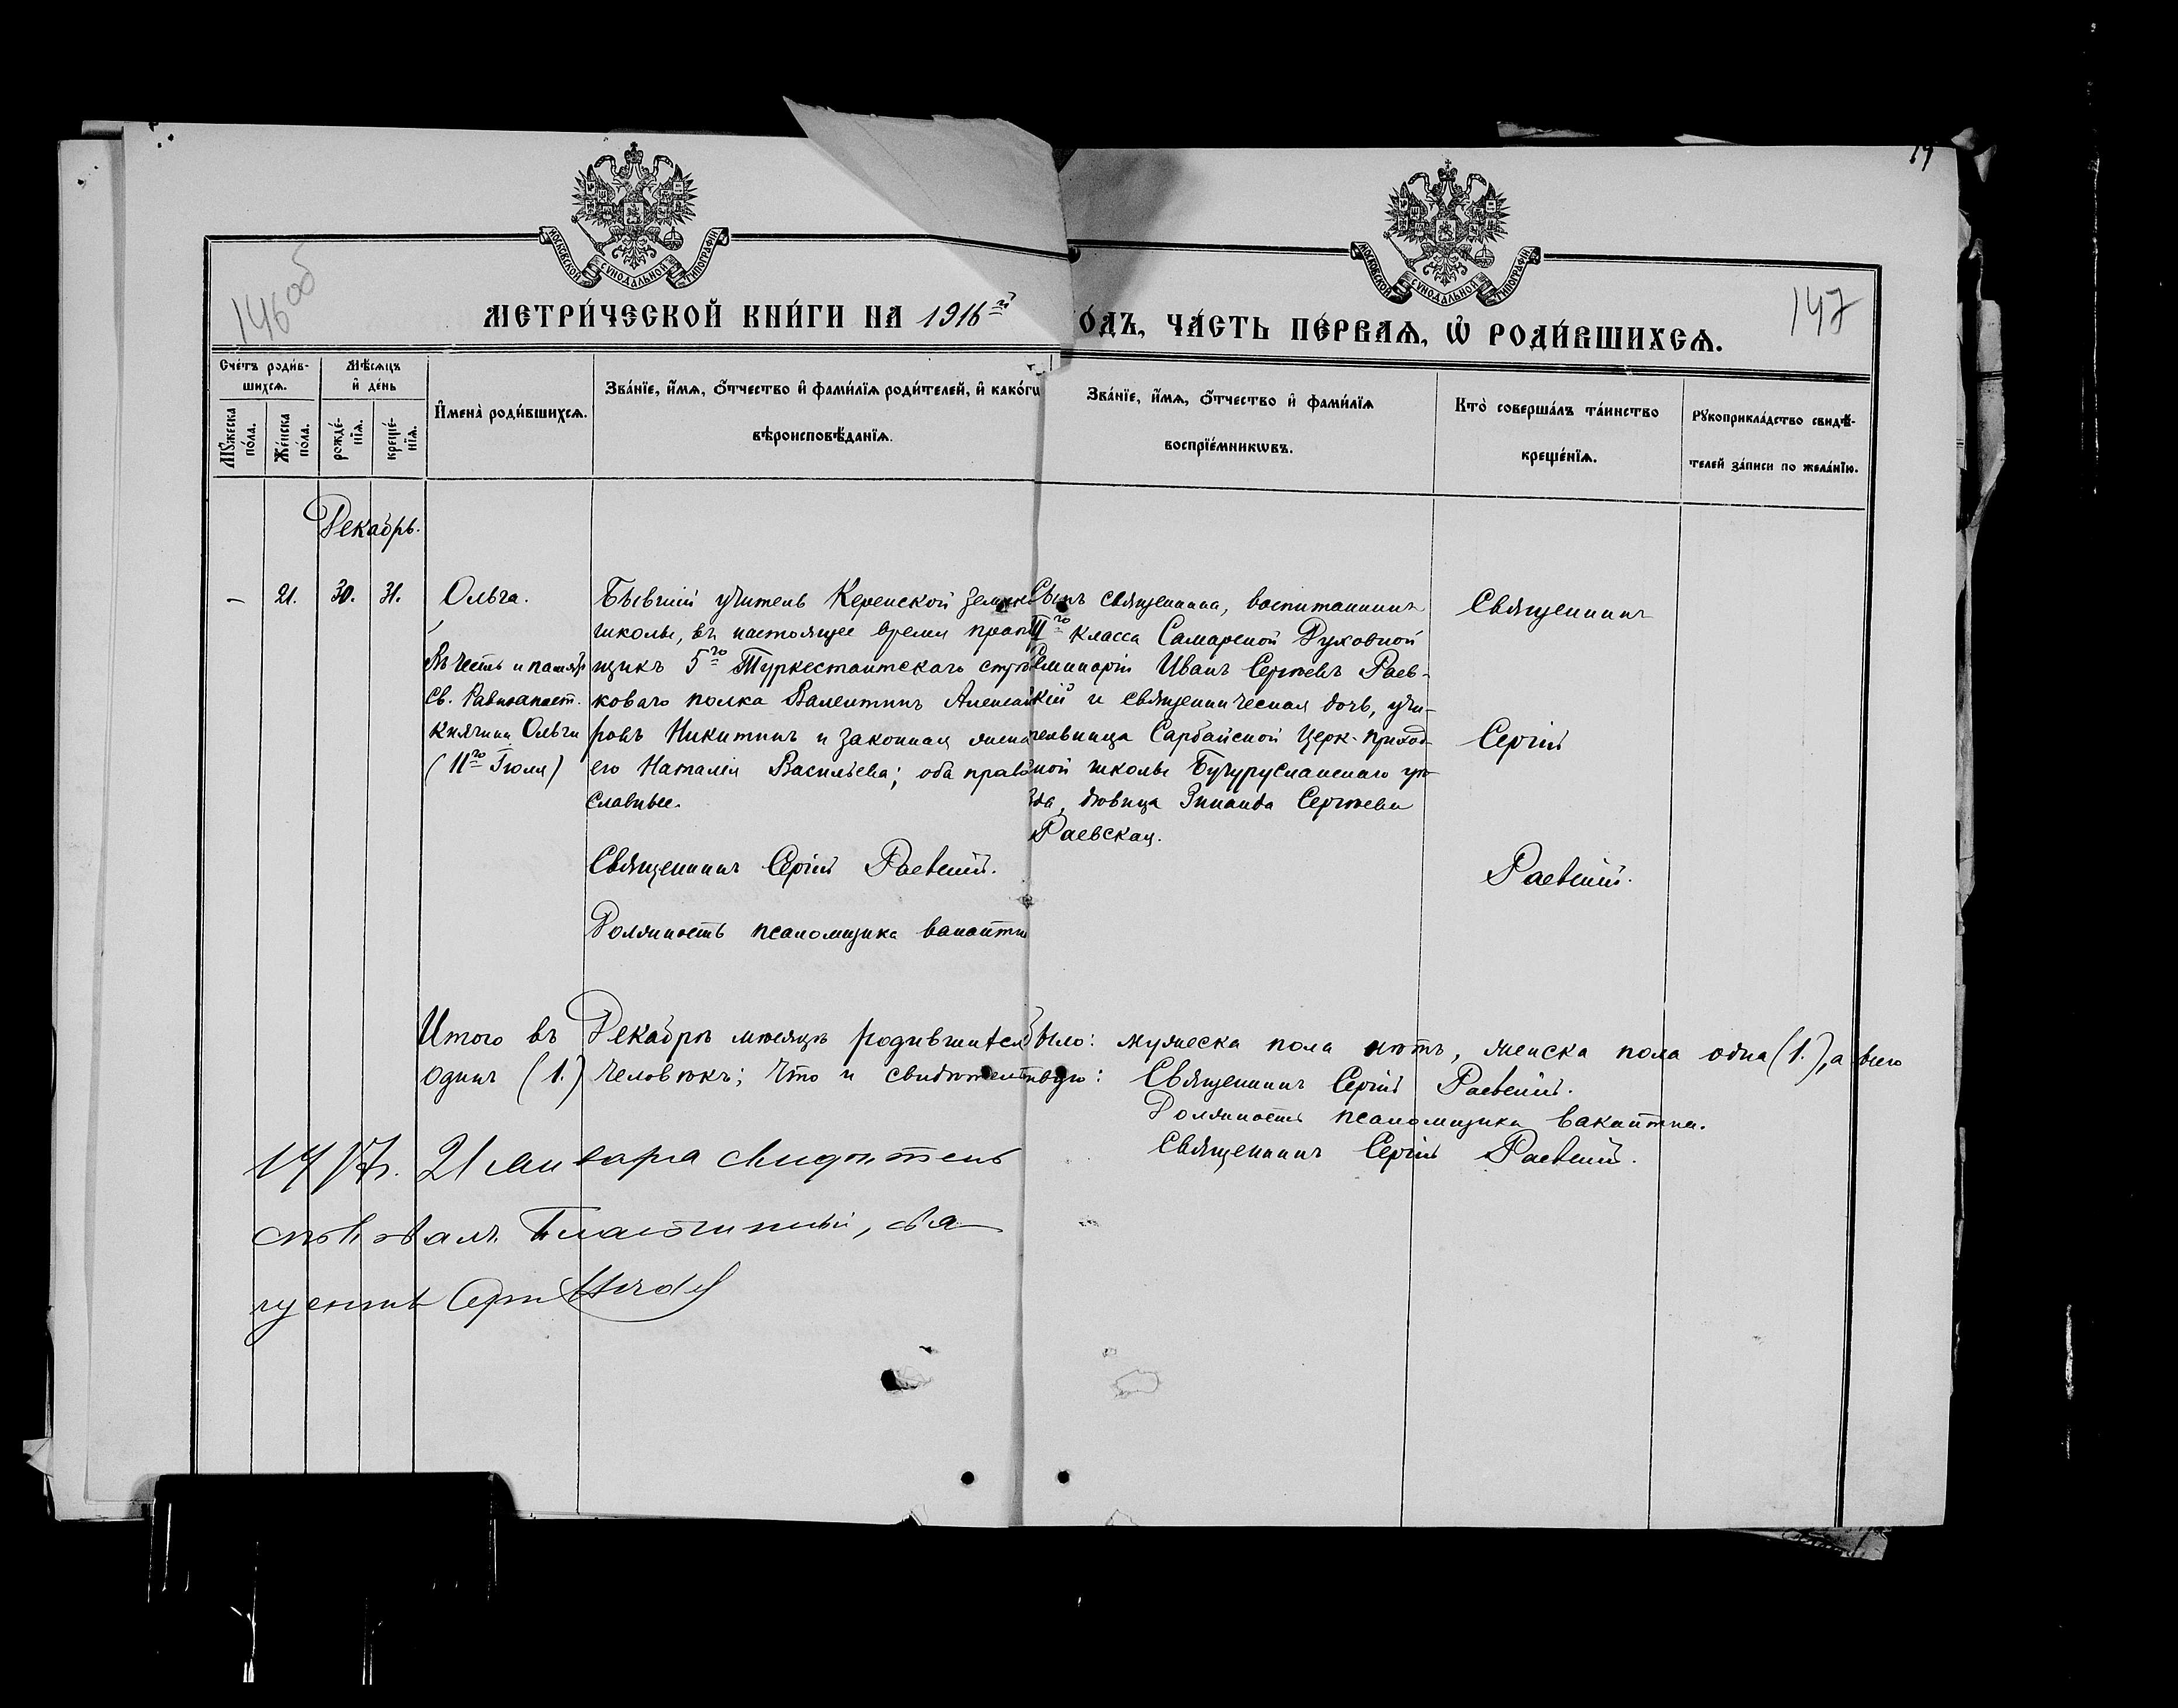 14
МОСКОВСКОЙ СУНОДАЛЬНОЙ ТИПОГРАФІИ
МОСКОВСКОЙ СУНОДАЛЬНОЙ ТИПОГРАФІИ
146 об
147
МЕТРИ́ЧЕСКОЙ КНИ́ГИ НА 1916й ОДЪ, ЧА́СТЬ ПЕ́РВАѦ, Ѡ҆ РОДИ́ВШИХСѦ.
Сче́тъ роди́в-
шихсѧ.
Мѣ́сѧцъ
и҆ де́нь
Мꙋ́жеска
по́ла.
Же́нска
по́ла.
рожде́-
нїѧ.
креще́-
нїѧ.
И҆мена̀ роди́вшихсѧ.
Зва́нїе, и҆́мѧ, ѻ҆́тчество и҆ фами́лїѧ роди́телей, и҆ како́гѡ
вѣроисповѣ́данїѧ.
Зва́нїе, и҆́мѧ, ѻ҆́тчество и҆ фами́лїѧ
воспрїе́мникѡвъ.
Кто̀ соверша́лъ та́инство
креще́нїѧ.
Рꙋкоприкла́дство свидѣ́-
телей за́писи по жела́нїю.
Декабрь.
–
21.
30.
31.
Ольга.
Въ честь и память
Св. Равноапост.
Княгини Ольги
(11го Іюля)
Бывшій учитель Керенской земск
школы, въ настоящее время прапор
щикъ 5го Туркестантскаго стрѣл
коваго полка Валентинъ Алексан
ровъ Никитинъ и законная жена
его Наталія Васильева; оба право
славные.
Священникъ Сергій Раевскій.
Должность псаломщика вакантна
Сынъ священника, воспитанникъ
IIго класса Самарской Духовной
Семинаріи Иванъ Сергѣевъ Раев-
скій и священническая дочь, учи-
тельница Сарбайской Церк-приход-
ной школы Бугурусланскаго уѣ-
зда, дѣвица Зинаида Сергѣева
Раевская.
Священникъ
Сергій
Раевскій.
Итого въ Декабрѣ мѣсяцѣ родившихся было: мужеска пола нѣтъ, женска пола одна (1.), а всего
одинъ (1.) человѣкъ; что и свидѣтельствую: Священникъ Сергій Раевскій.
Должность псаломщика вакантна.
Священникъ Сергій Раевскій.
1917г. 21 января свидѣтель
ствовалъ Благочинный, свя
щенникъ